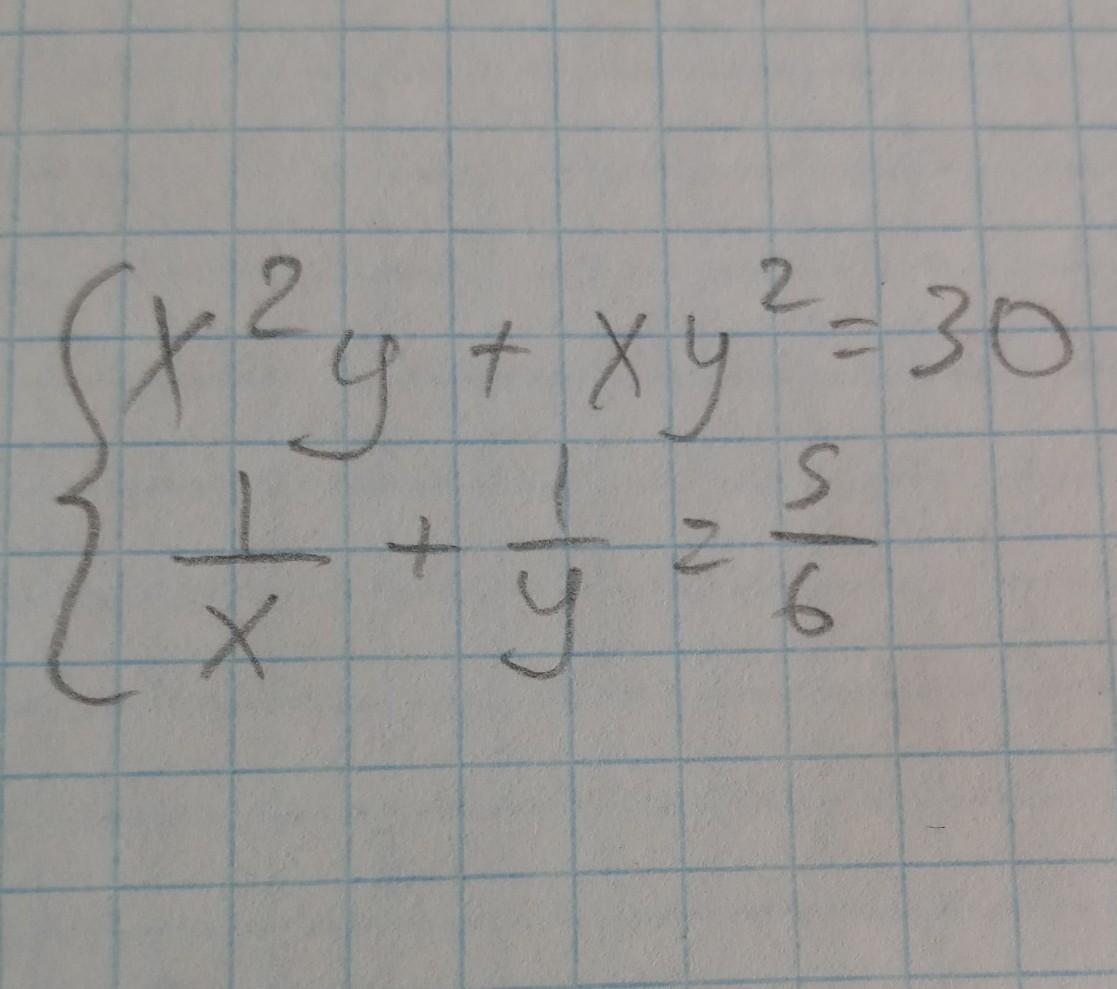 x²y + xy² = 30
1/x + 1/y = 5/6